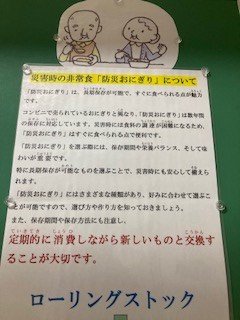 災害時の非常食「防災おにぎり」について
「防災おにぎり」は、長期保存が可能で、すぐに食べられる点が魅力
です。
コンビニで売られているおにぎりと異なり、「防災おにぎり」は数年間
の保存に対応しています。災害時には食料の調達が困難になるため、
「防災おにぎり」はすぐに食べられる点で便利です。
「防災おにぎり」を選ぶ際には、保存期間や栄養バランス、そして味
わいが重要です。
特に長期保存が可能なものを選ぶことで、災害時にも安心して備えら
れます。
「防災おにぎり」にはさまざまな種類があり、好みに合わせて選ぶこ
とが可能ですので、選び方や作り方を知っておきましょう。
また、保存期間や保存方法にも注意し、
定期的に消費しながら新しいものと交換す
ることが大切です。
ローリングストック